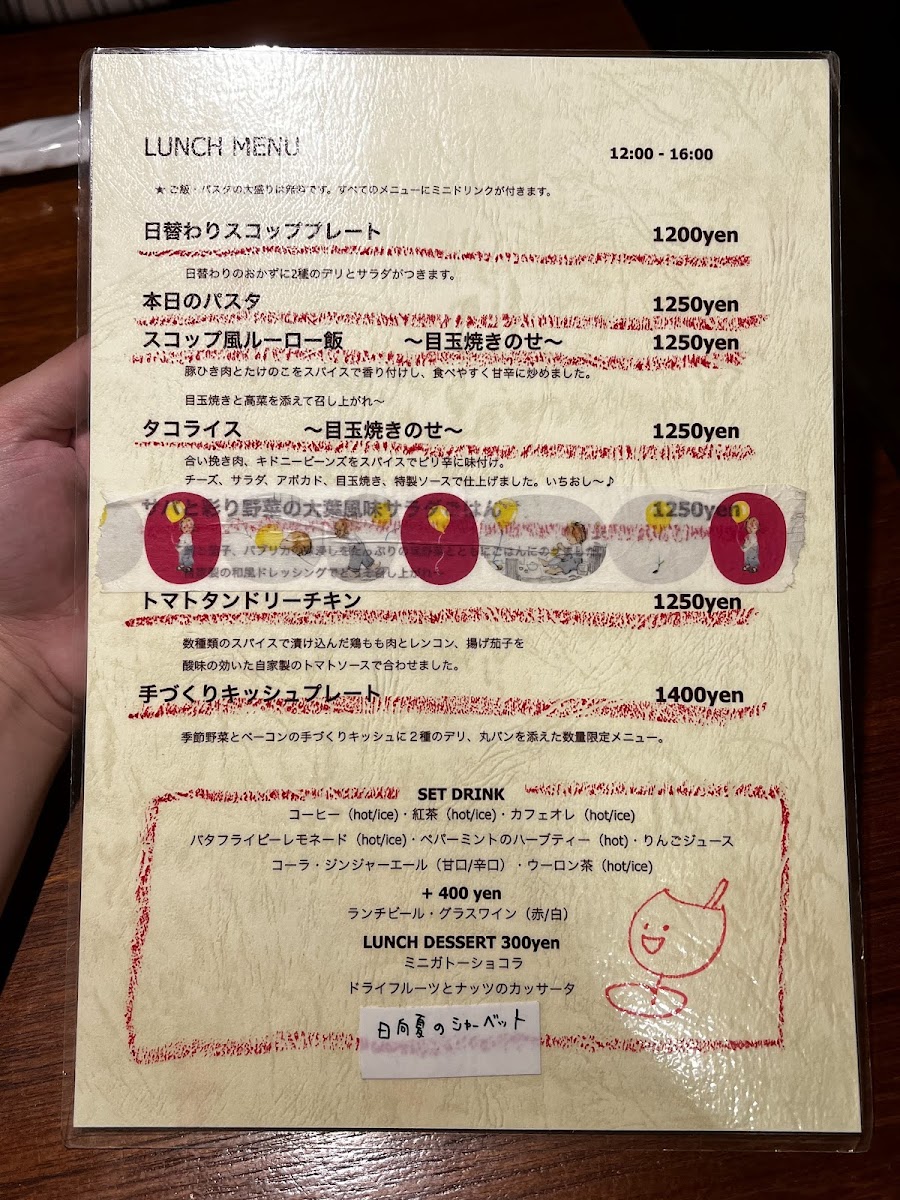 LUNCH MENU
12:00 - 16:00
★ ご飯・パスタの大盛りは無料です。すべてのメニューにミニドリンクが付きます。
日替わりスコッププレート 1200yen
日替わりのおかずに2種のデリとサラダがつきます。
本日のパスタ 1250yen
スコップ風ルーロー飯 〜目玉焼きのせ〜 1250yen
豚ひき肉とたけのこをスパイスで香り付けし、食べやすく甘辛に炒めました。
目玉焼きと高菜を添えて召し上がれ〜
タコライス 〜目玉焼きのせ〜 1250yen
合い挽き肉、キドニービーンズをスパイスでピリ辛に味付け。
チーズ、サラダ、アボカド、目玉焼き、特製ソースで仕上げました。いちおし〜♪
サバと彩り野菜の大葉風味サラダごはん 1250yen
自家製の和風ドレッシングでどうぞ召し上がれ〜
トマトタンドリーチキン 1250yen
数種類のスパイスで漬け込んだ鶏もも肉とレンコン、揚げ茄子を
酸味の効いた自家製のトマトソースで合わせました。
手づくりキッシュプレート 1400yen
季節野菜とベーコンの手づくりキッシュに２種のデリ、丸パンを添えた数量限定メニュー。
SET DRINK
コーヒー（hot/ice）・紅茶（hot/ice）・カフェオレ（hot/ice）
バタフライピーレモネード（hot/ice）・ペパーミントのハーブティー（hot）・りんごジュース
コーラ・ジンジャーエール（甘口/辛口）・ウーロン茶（hot/ice）
+ 400 yen
ランチビール・グラスワイン（赤/白）
LUNCH DESSERT 300yen
ミニガトーショコラ
ドライフルーツとナッツのカッサータ
日向夏のシャーベット